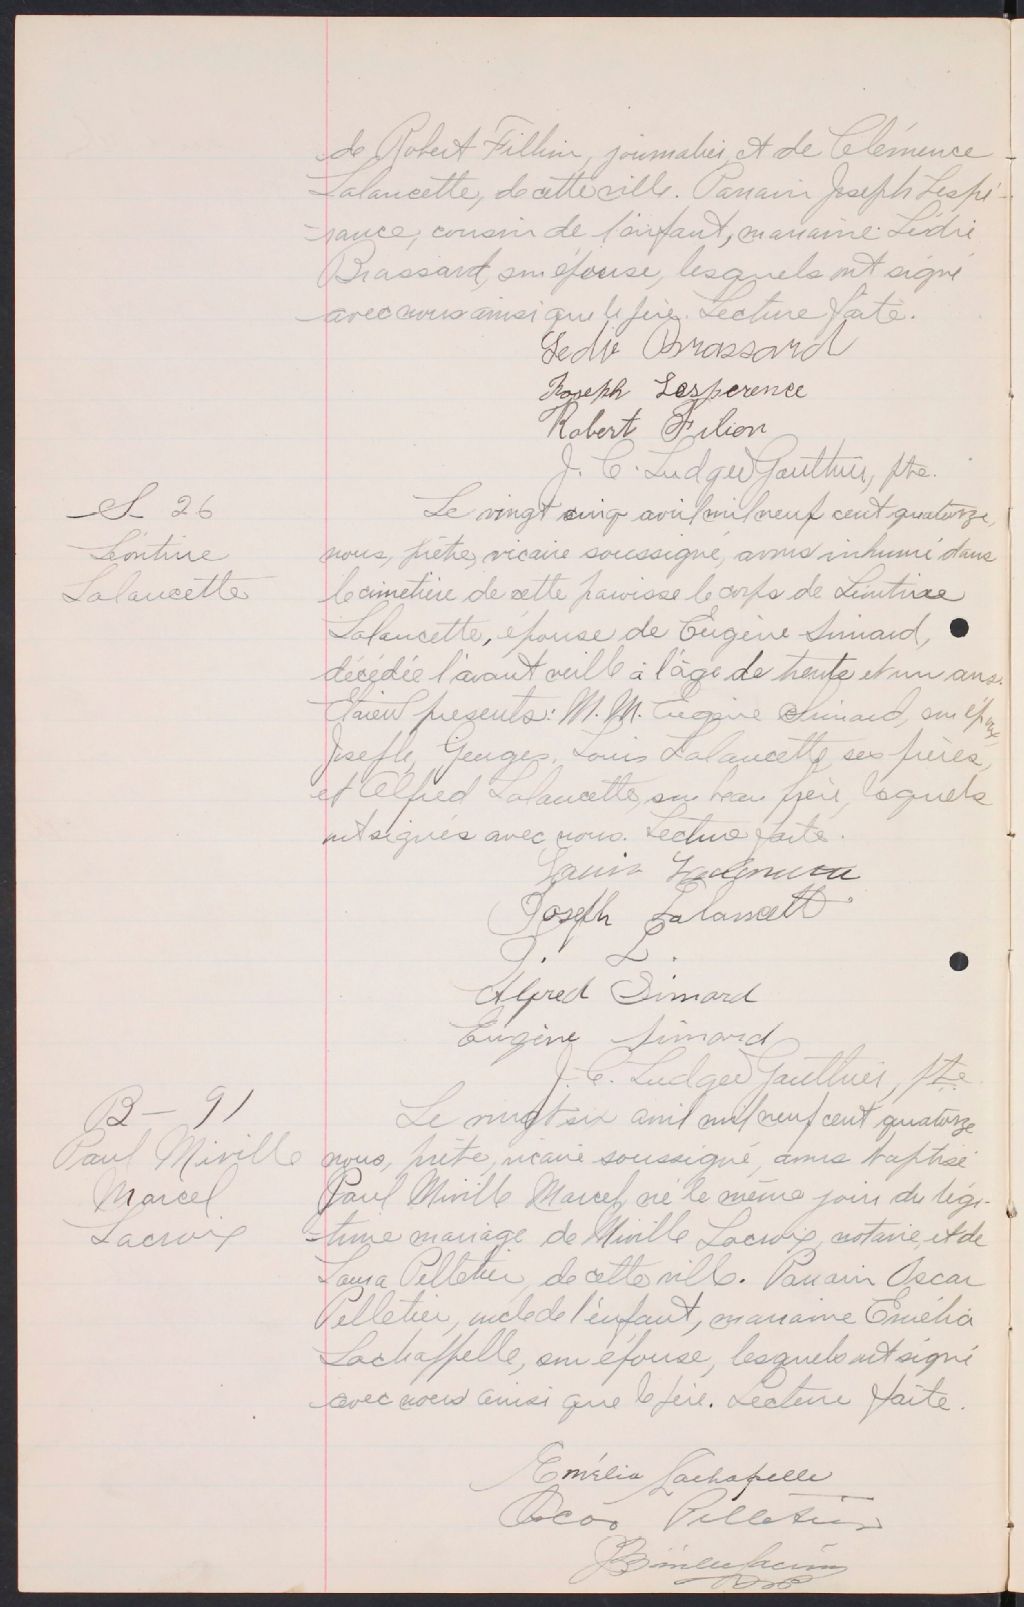 de Robert Fillion, journalier, et de Clémence
Lalancette, de cette ville. Parrain Joseph Lespé-
rance, cousin de l'enfant, marraine Lédie
Brassard, son épouse, lesquels ont signé
avec nous ainsi que le père. Lecture faite.
Ledie Brassard
Joseph Lesperence
Robert Filion
J. C. Ludger Gauthier, ptre.
S 26
Léontine
Lalancette
Le vingt cinq avril mil neuf cent quatorze,
nous, prêtre, vicaire soussigné, avons inhumé dans
le cimetière de cette paroisse le corps de Léontine
Lalancette, épouse de Eugène Simard,
décédée l'avant veille à l'âge de trente et un ans.
Etaient présents: M. M. Eugène Simard, son époux,
Joseph, Georges, Louis Lalancette, ses frères,
et Alfred Lalancette, son beau frère, lesquels
ont signés avec nous. Lecture faite.
Louis
Joseph Lalancett
J. L.
Alfred Simard
Eugène Simard
J. C. Ludger Gauthier, ptre.
B - 91
Paul Miville
Marcel
Lacroix
Le vingt six avril mil neuf cent quatorze
nous, prêtre, vicaire soussigné, avons baptisé
Paul Miville Marcel, né le même jour du légi-
time mariage de Miville Lacroix, notaire, et de
Laura Pelletier, de cette ville. Parrain Oscar
Pelletier, oncle de l'enfant, marraine Emélia
Lachapelle, son épouse, lesquels ont signé
avec nous ainsi que le père. Lecture faite.
Emélia Lachapelle
Oscar Pelletier